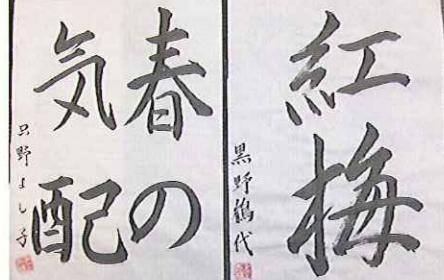 紅梅
黒野鶴代
春の
気配
只野よし子